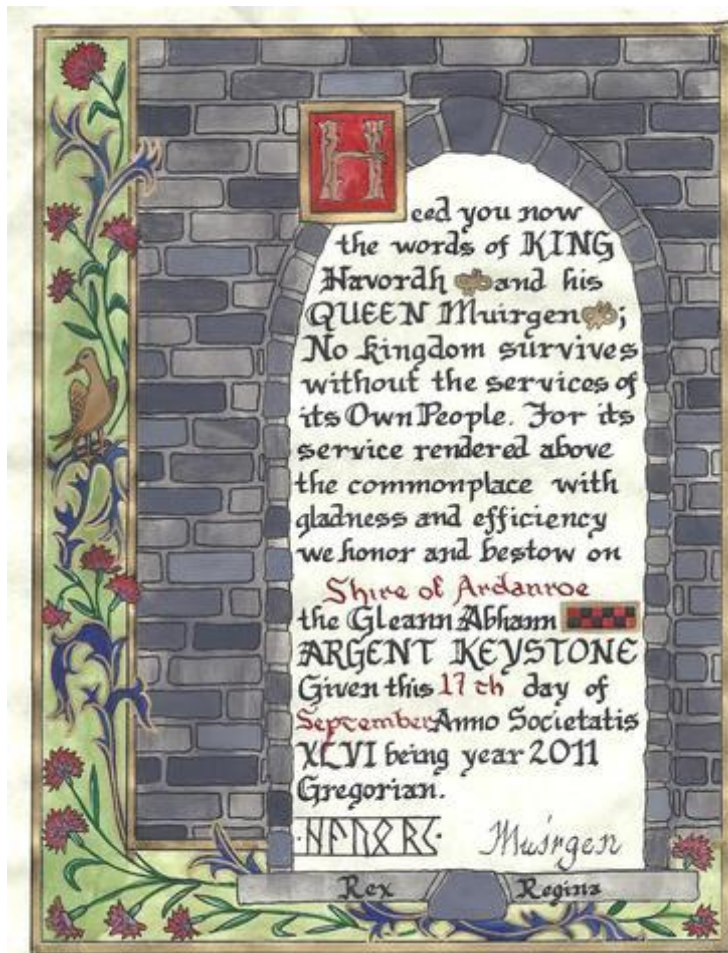 Heed you now
the words of KING
Havordh and his
QUEEN Muirgen;
No kingdom survives
without the services of
its Own People. For its
service rendered above
the commonplace with
gladness and efficiency
we honor and bestow on
Shire of Ardanroe
the Gleann Abhann
ARGENT KEYSTONE
Given this 17th day of
September Anno Societatis
XLVI being year 2011
Gregorian.
Muirgen
Rex Regina